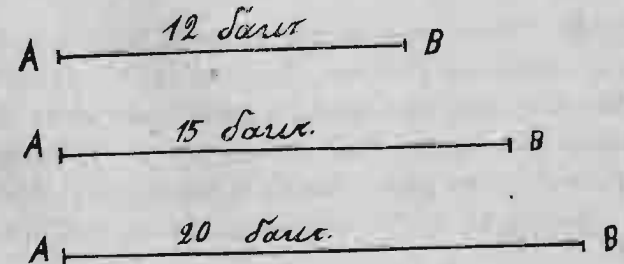 A 12 банк B
A 15 банк. B
A 20 банк. B